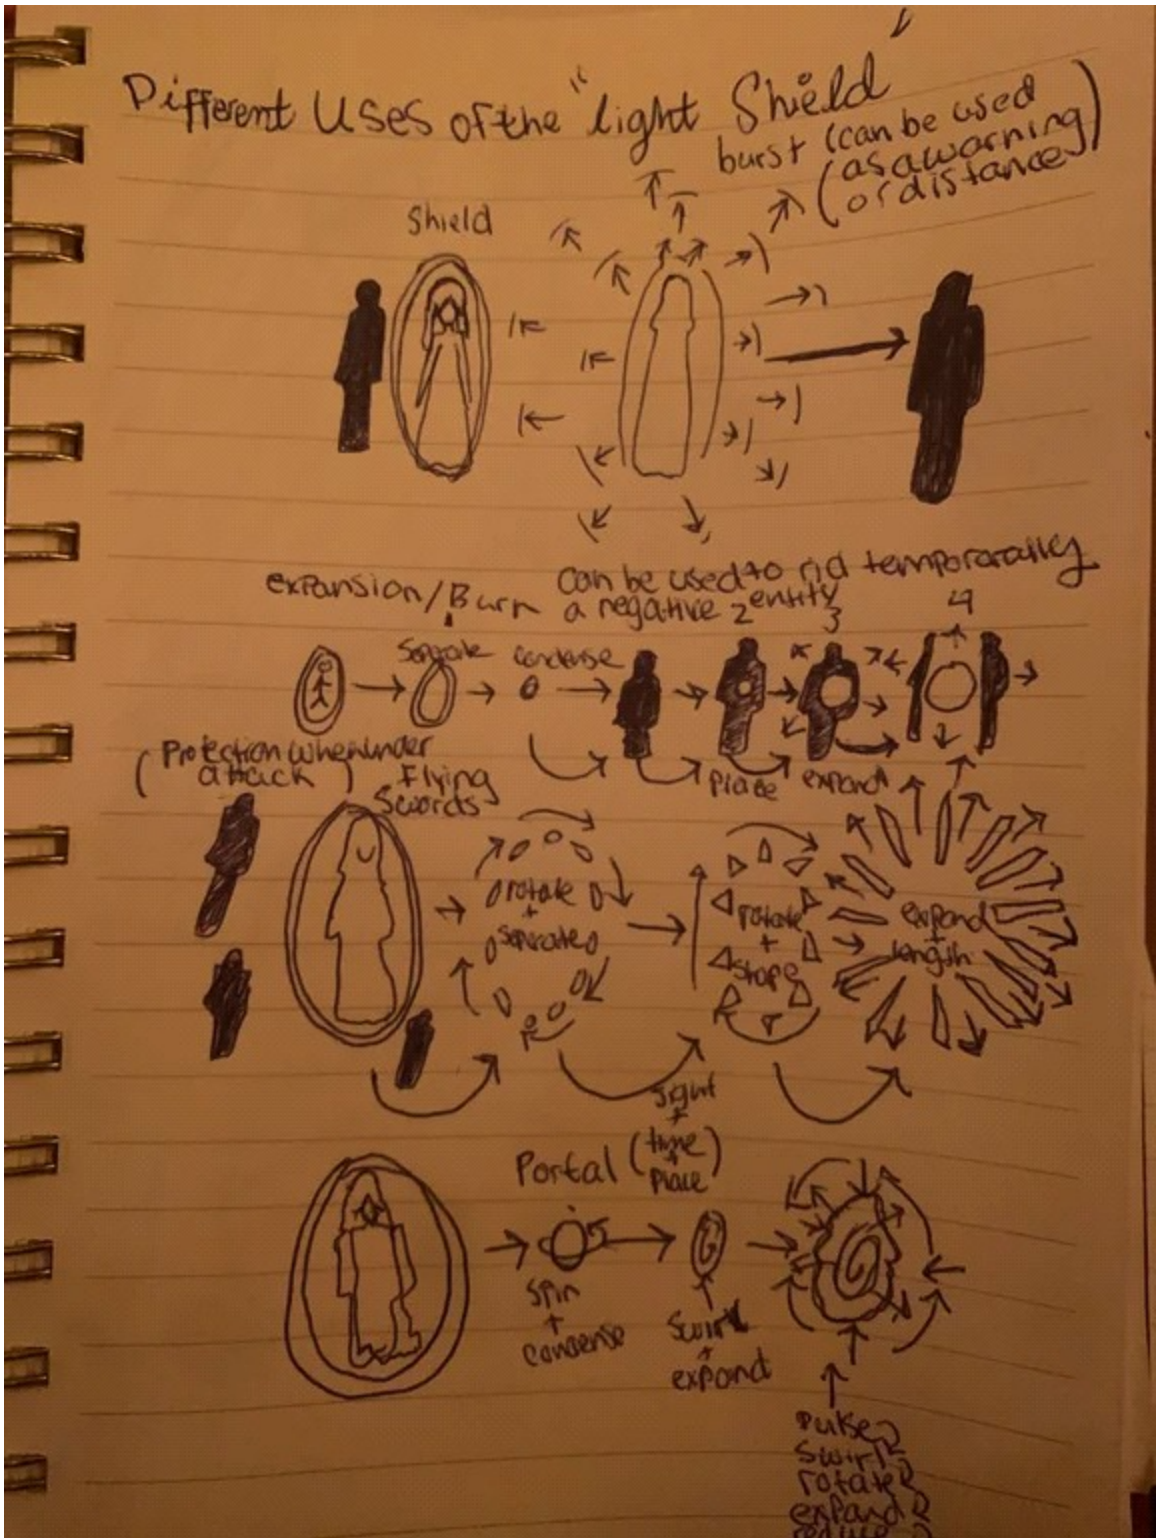 Different Uses of the "light Shield"
burst (can be used
(as a warning)
or distance
Shield
expansion/Burn
can be used to rid temporarailly
a negative entity
2
3
4
Seprate
condense
place
expand
(Protection when under
attack)
Flying
Swords
rotate
+
seperate
rotate
+
shape
expand
+
length
Portal (
sight
+
time
+
place
)
spin
+
condense
swirl
+
expand
pulse
swirl
rotate
expand
reduce